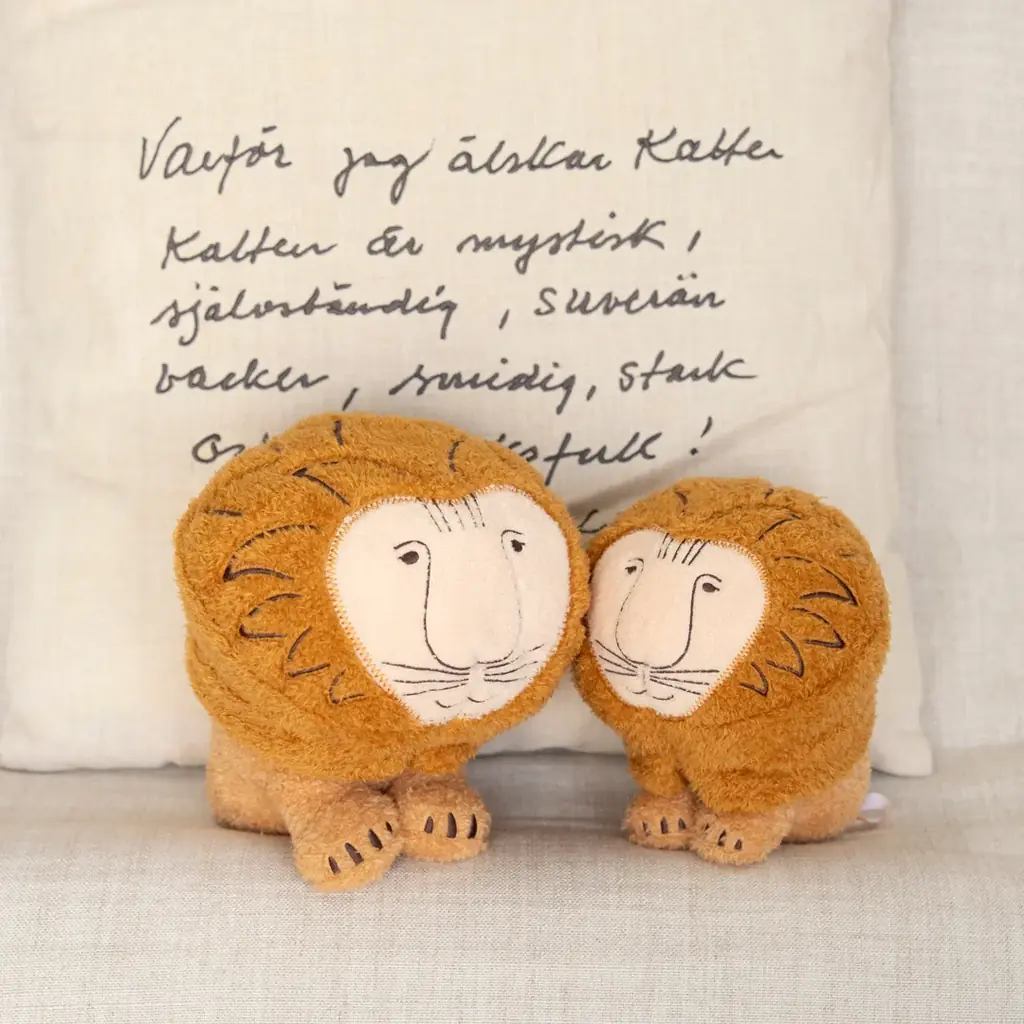 Varför jag älskar Katter
Katten är mystisk,
självständig, suverän
vacker, smidig, stark
oc ksfull!